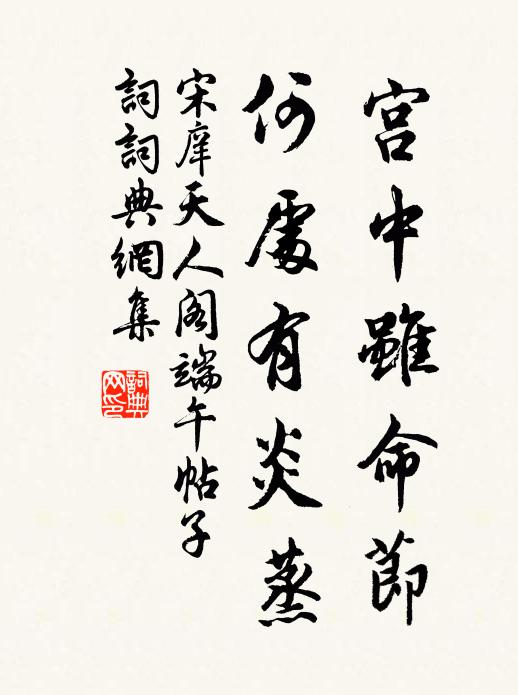 宮中雖命節
何處有炎蒸
宋庠天人閣端午帖子
詞詞典網集
詞典
网印